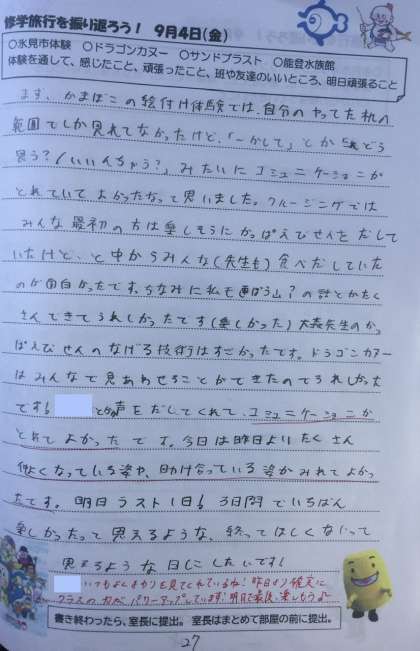 修学旅行を振り返ろう！ 9月4日(金)
○氷見市体験 ○ドラゴンカヌー ○サンドブラスト ○能登水族館
体験を通して、感じたこと、頑張ったこと、班や友達のいいところ、明日頑張ること
まず、かまぼこの絵付け体験では、自分のやってた机の
範囲でしか見れてなかったけど、「〜かして」とか どう
思う？/いいんちゃう？」みたいにコミュニケーションが
とれていてよかったなって思いました。クルージングでは
みんな最初の方は楽しそうにかっぱえびせんを だして
いたけど、と中からみんな(先生も)食べだしていた
のが面白かったです。ちなみに私も 山？の話とかたく
さんできてうれしかったです(楽しかった) 大森先生のかっ
ぱえびせんのなげる技術はすごかったです。ドラゴンカヌー
はみんなで息あわせることができたのでうれしかった
です! とか声をだしてくれて、コミュニケーションが
とれてよかったです。今日は昨日よりたくさん
仲よくなっている姿や、助け合っている姿がみれてよかっ
たです。明日ラスト1日! 3日間でいちばん
楽しかったって思えるような、終ってほしくないって
思えるような日にしたいです!
いつもよくまわりを見てくれているね! 昨日より確実に
クラスの力がパワーアップしています! 明日で最後、楽しもう♪
書き終わったら、室長に提出。室長はまとめて部屋の前に提出。
27